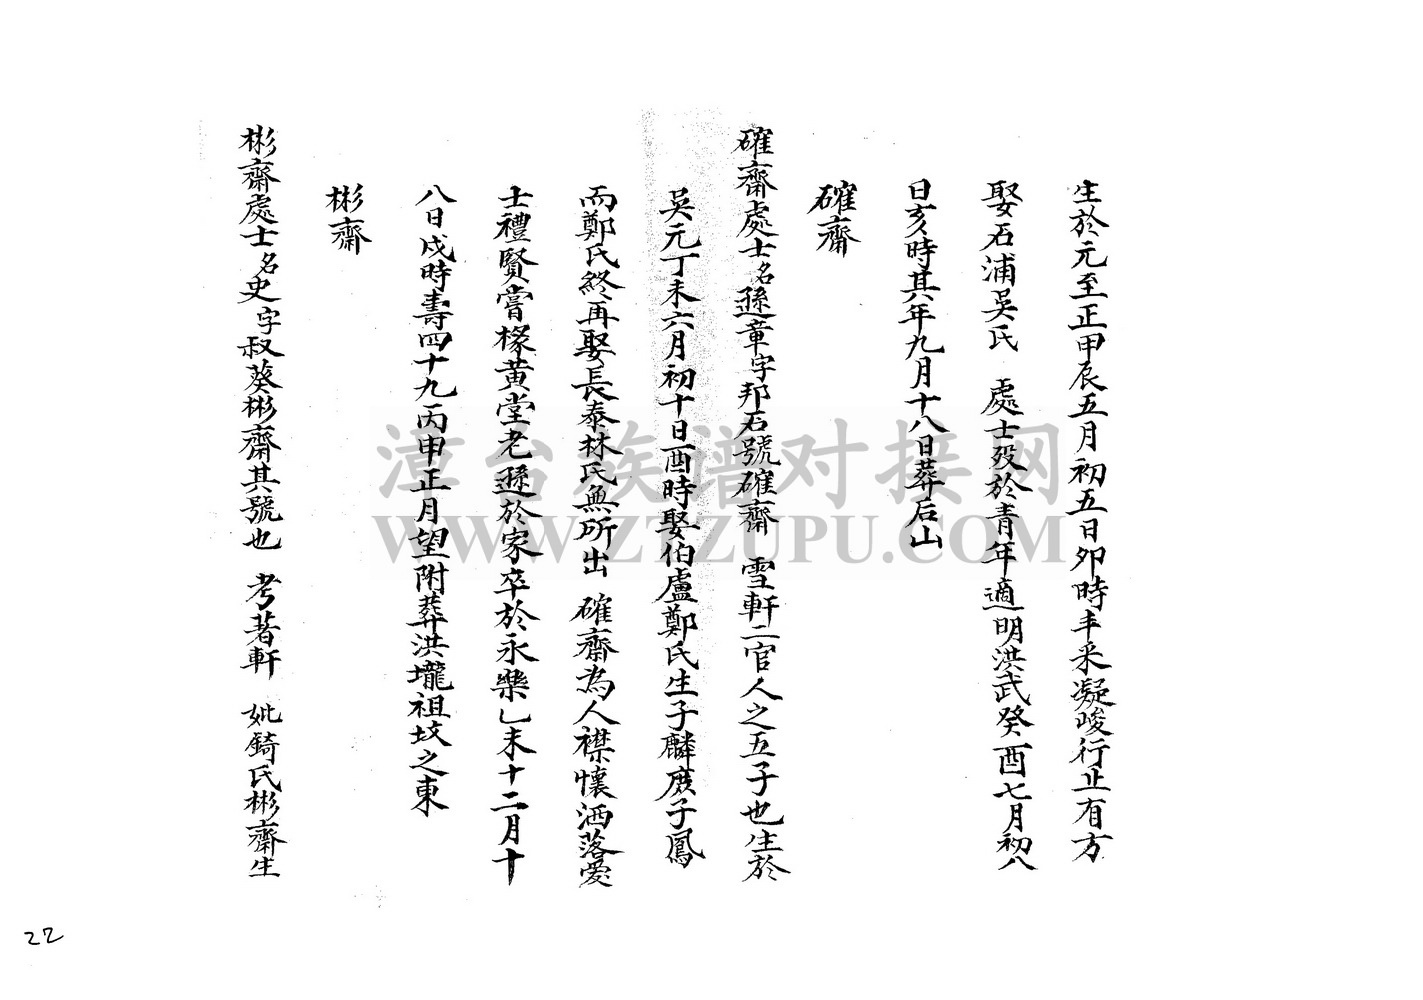 生於元至正甲辰五月初五日卯時丰采凝峻行止有方
娶石浦吳氏 處士歿於青年適明洪武癸酉七月初八
日亥時其年九月十八日葬后山
確齋
確齋處士名遜章字邦石號確齋 雪軒二官人之五子也生於
吳元丁未六月初十日酉時娶伯盧鄭氏生子麟庶子鳳
而鄭氏終再娶長泰林氏無所出 確齋為人襟懷洒落愛
士禮賢嘗椽黃堂老遜於家卒於永樂乙未十二月十
八日戌時壽四十九丙申正月望附葬洪壠祖坟之東
彬齋
彬齋處士名史字叔葵彬齋其號也 考著軒 妣錡氏彬齋生
漳台族谱对接网
WWW.ZTZUPU.COM
22